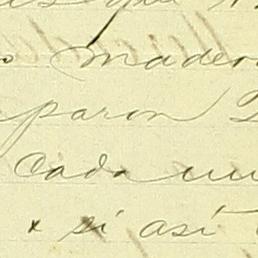 que
s madero
paron
Cada un
x si así